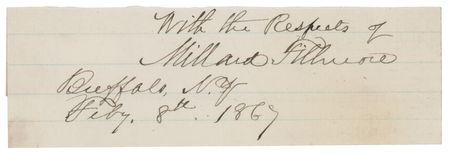 With the Respects of
Millard Fillmore
Buffalo, N.Y
Feby. 8th 1867